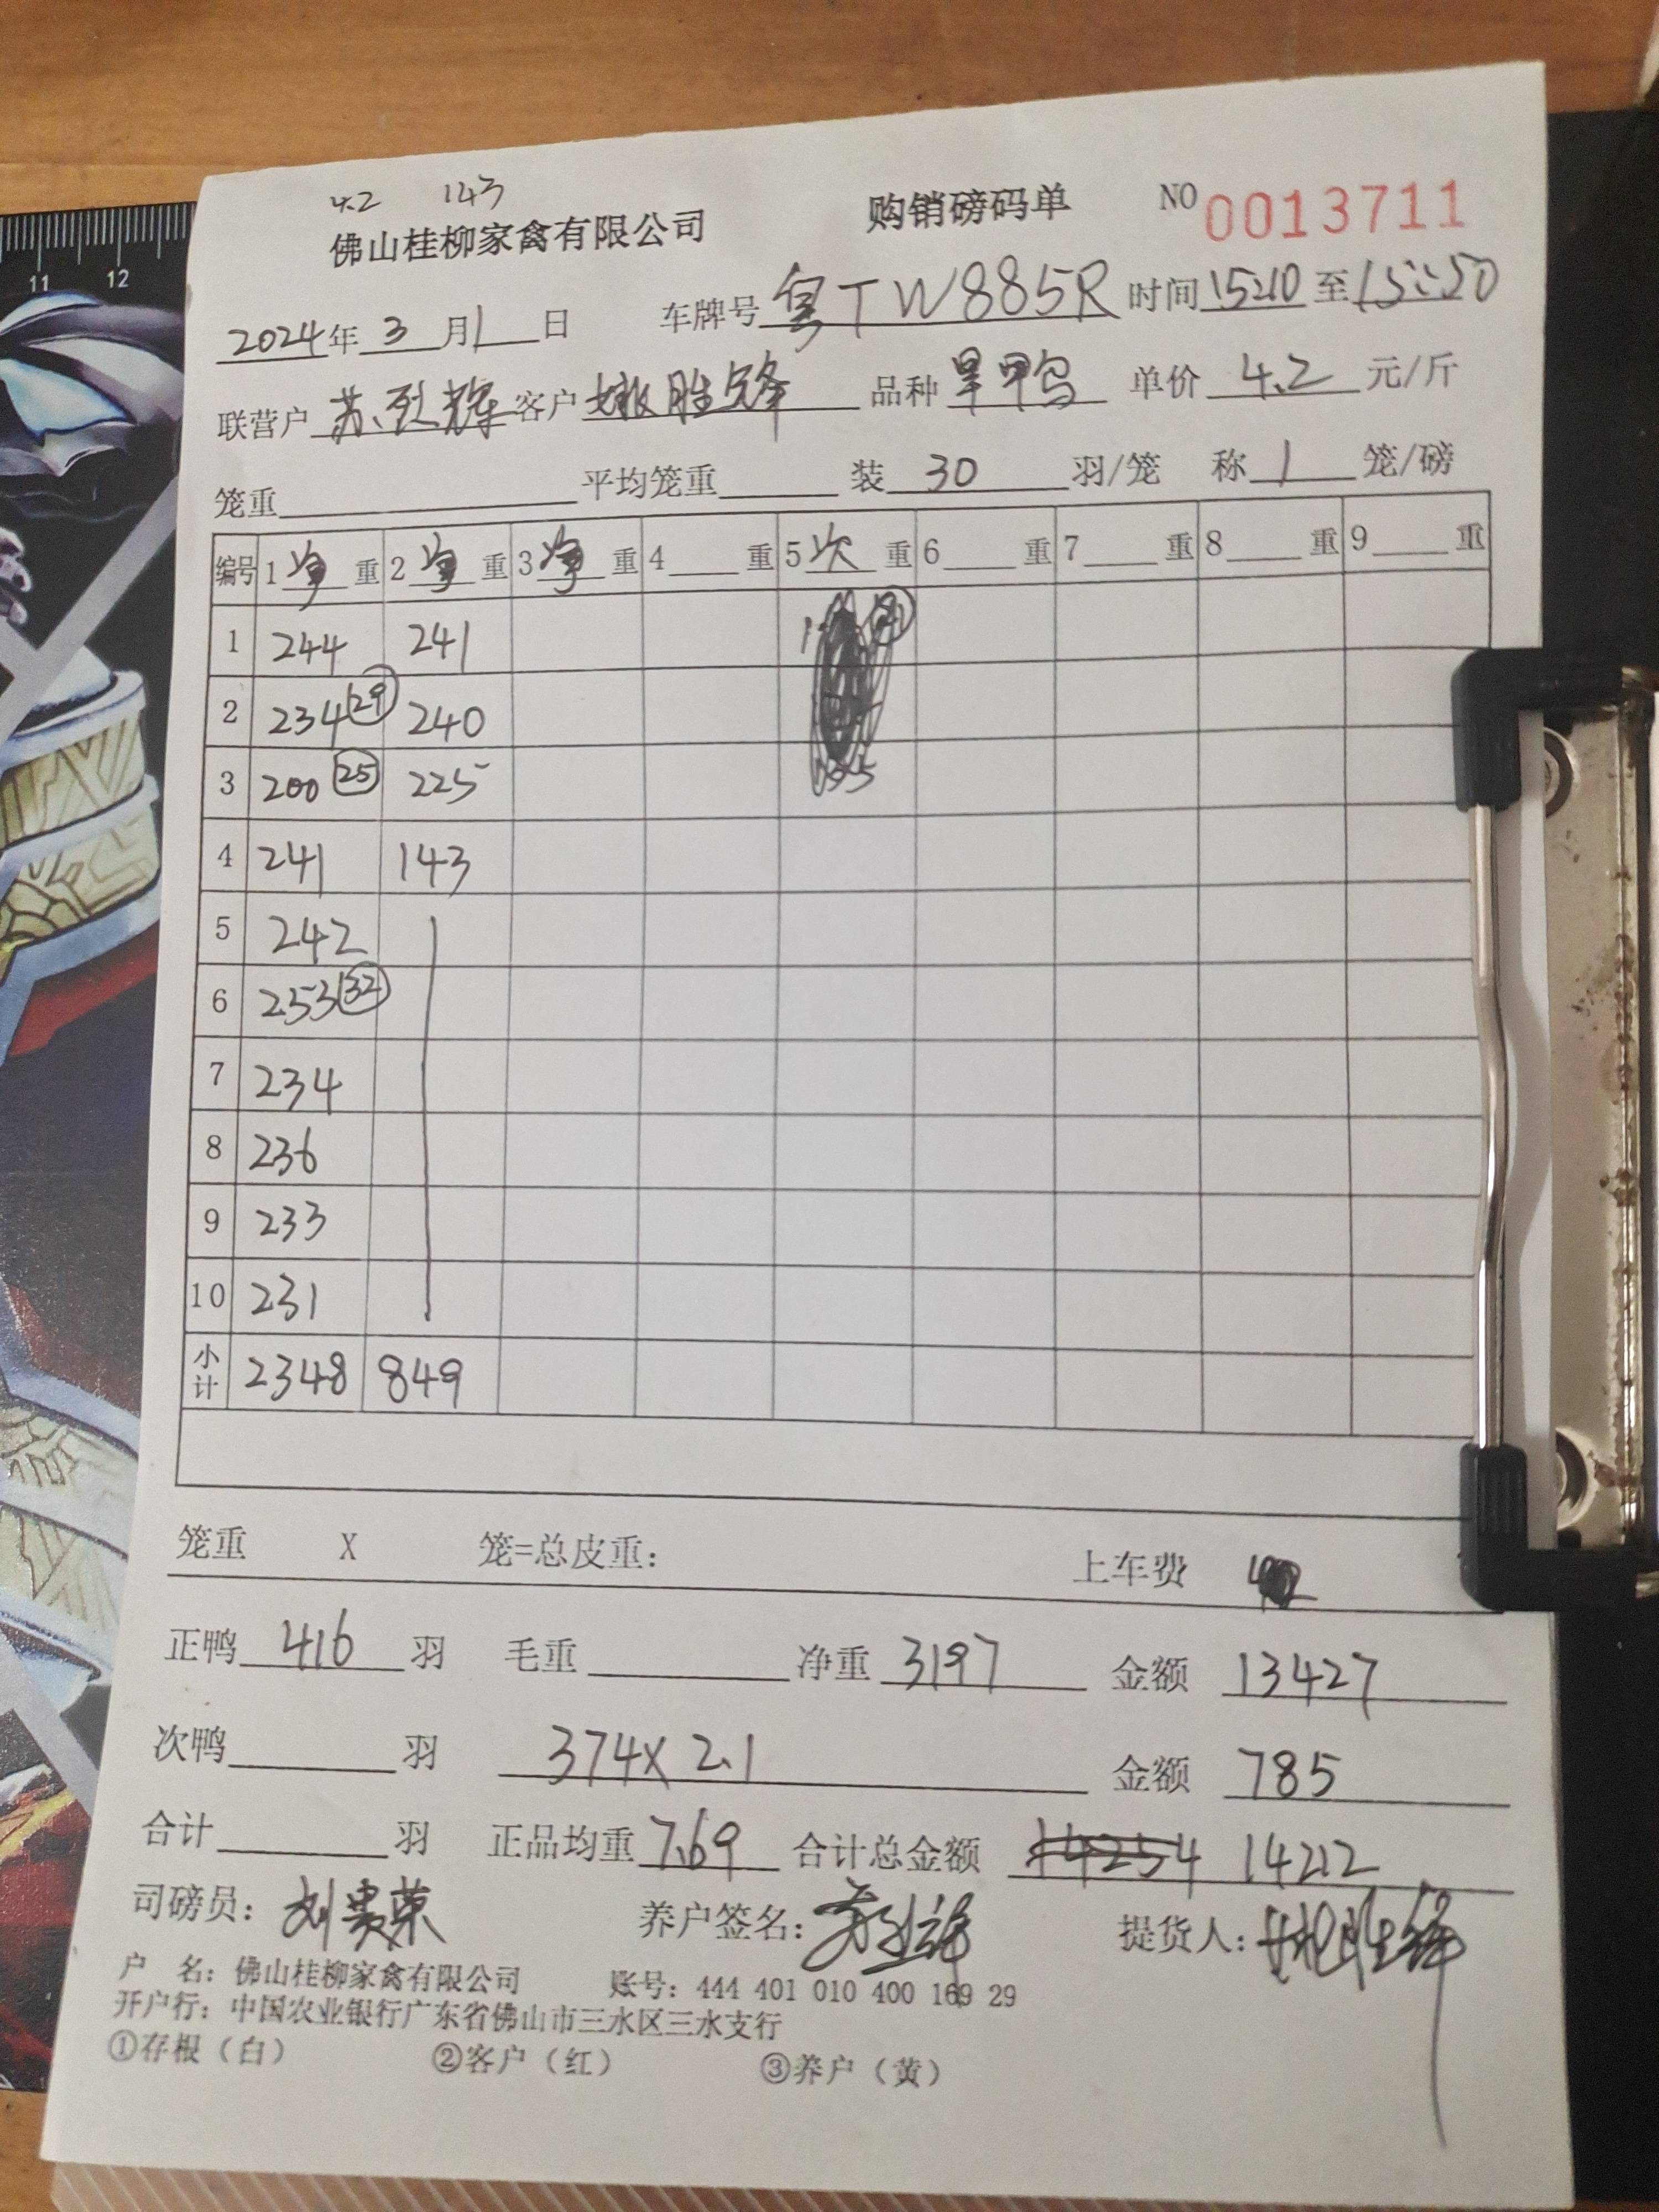 4.2 143
佛山桂柳家禽有限公司 购销磅码单 NO 0013711
2024年 3 月 1 日 车牌号 粤TW885R 时间 15:10 至 15:50
联营户 苏烈辉 客户 姚胜锋 品种 旱甲鸟 单价 4.2 元/斤
笼重 平均笼重 装 30 羽/笼 称 1 笼/磅
编号 1 净 重 2 净 重 3 净 重 4 重 5 次 重 6 重 7 重 8 重 9 重
1 244 241
2 234 29 240
3 200 25 225
4 241 143
5 242
6 253 32
7 234
8 236
9 233
10 231
小计 2348 849
笼重 X 笼=总皮重: 上车费
正鸭 416 羽 毛重 净重 3197 金额 13427
次鸭 羽 374X2.1 金额 785
合计 羽 正品均重 7.69 合计总金额 14254 14212
司磅员: 刘贵荣 养户签名: 提货人:
户 名: 佛山桂柳家禽有限公司 账号: 444 401 010 400 169 29
开户行: 中国农业银行广东省佛山市三水区三水支行
①存根(白) ②客户(红) ③养户(黄)
11 12